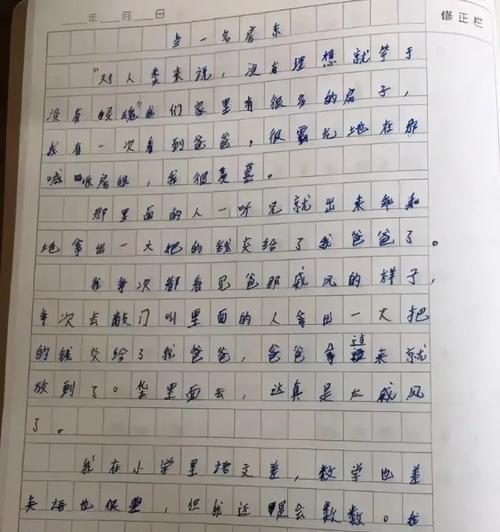 年 月 日
修正栏
当一名房东
"对人类来说,没有理想就等于
没有灵魂"我们家里有很多的房子,
我有一次看到爸爸,很霸气地在那
喊 收房租,我很羡慕。
那里面的人一听见就出来乖乖
地拿出一大把的钱交给了我爸爸了。
我每次都看见爸那威风的样子,
每次去敲门叫里面的人拿出一大把
的钱交给了我爸爸,爸爸拿过来就
放到了。包里面去,这真是太威风
了。
我在小学里语文差,数学也差
英语也很差,但我还是会数数。我